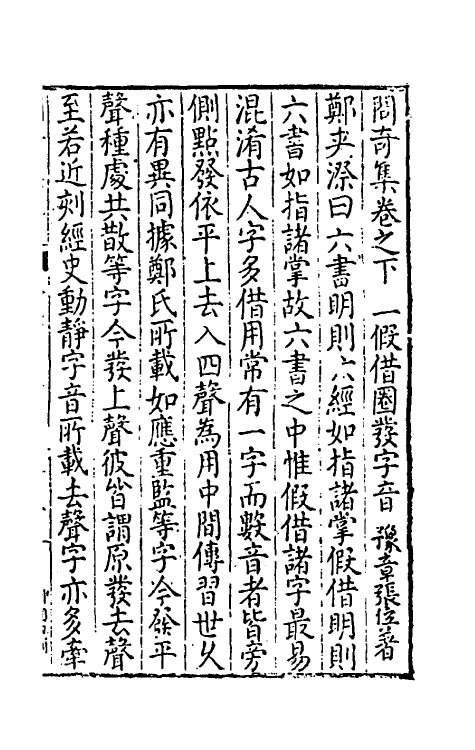 問奇集卷之下 一假借圈發字音 豫章張位著
鄭夾漈曰六書明則六經如指諸掌假借明則
六書如指諸掌故六書之中惟假借諸字最易
混淆古人字多借用常有一字而數音者皆旁
側點發依平上去入四聲為用中間傳習世久
亦有異同據鄭氏所載如應重監等字今發平
聲種處共散等字今發上聲彼皆謂原發去聲
至若近刻經史動靜字音所載去聲字亦多牽